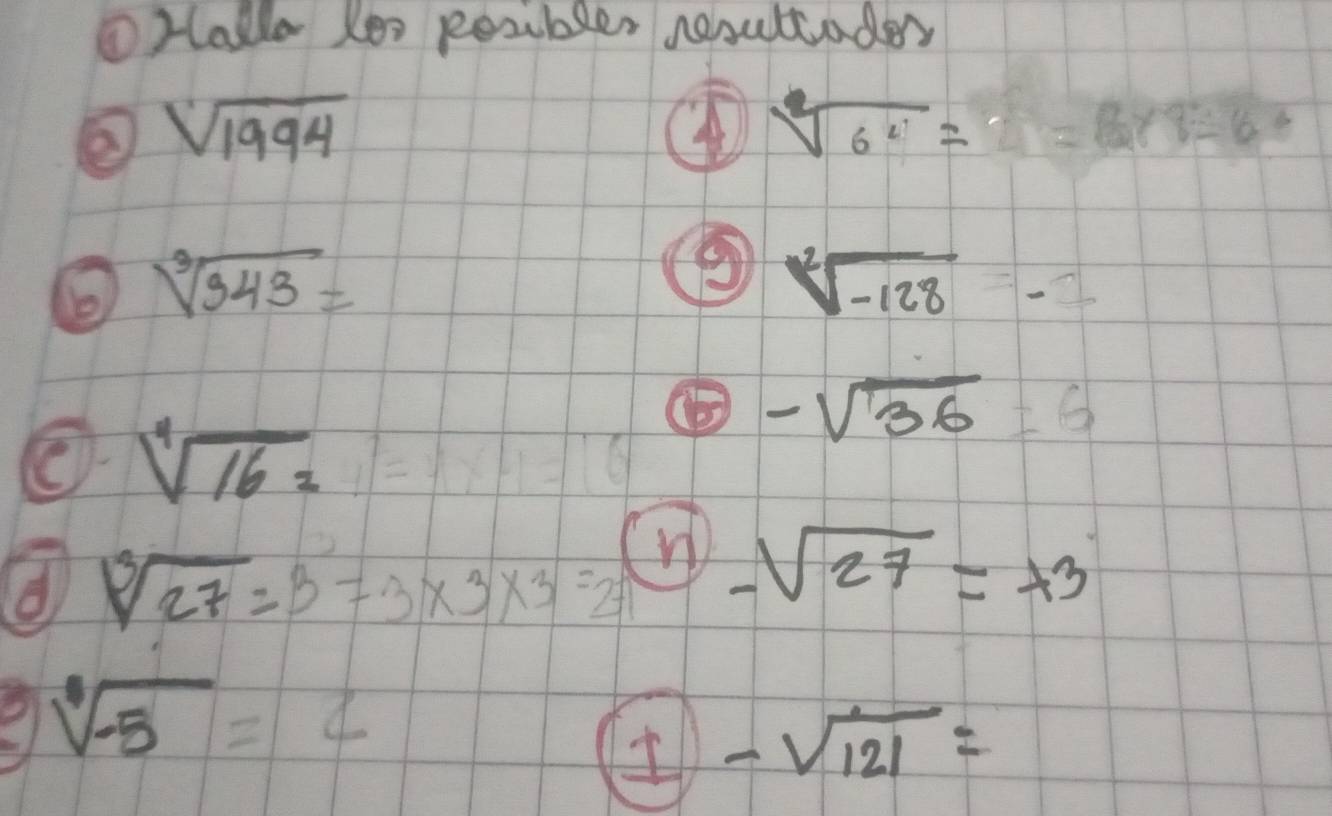 ① Halla los posibles resultados
ⓐ √1994
ⓑ ³√343 =
ⓒ ⁴√16 =
ⓓ ³√27 = 3 = 3 x 3 x 3 = 27
ⓔ √-5 =
④ ²√64 =
ⓖ ²√-128 = -
ⓑ -√36 = 6
ⓝ -√27 = +3
Ⓘ -√121 =